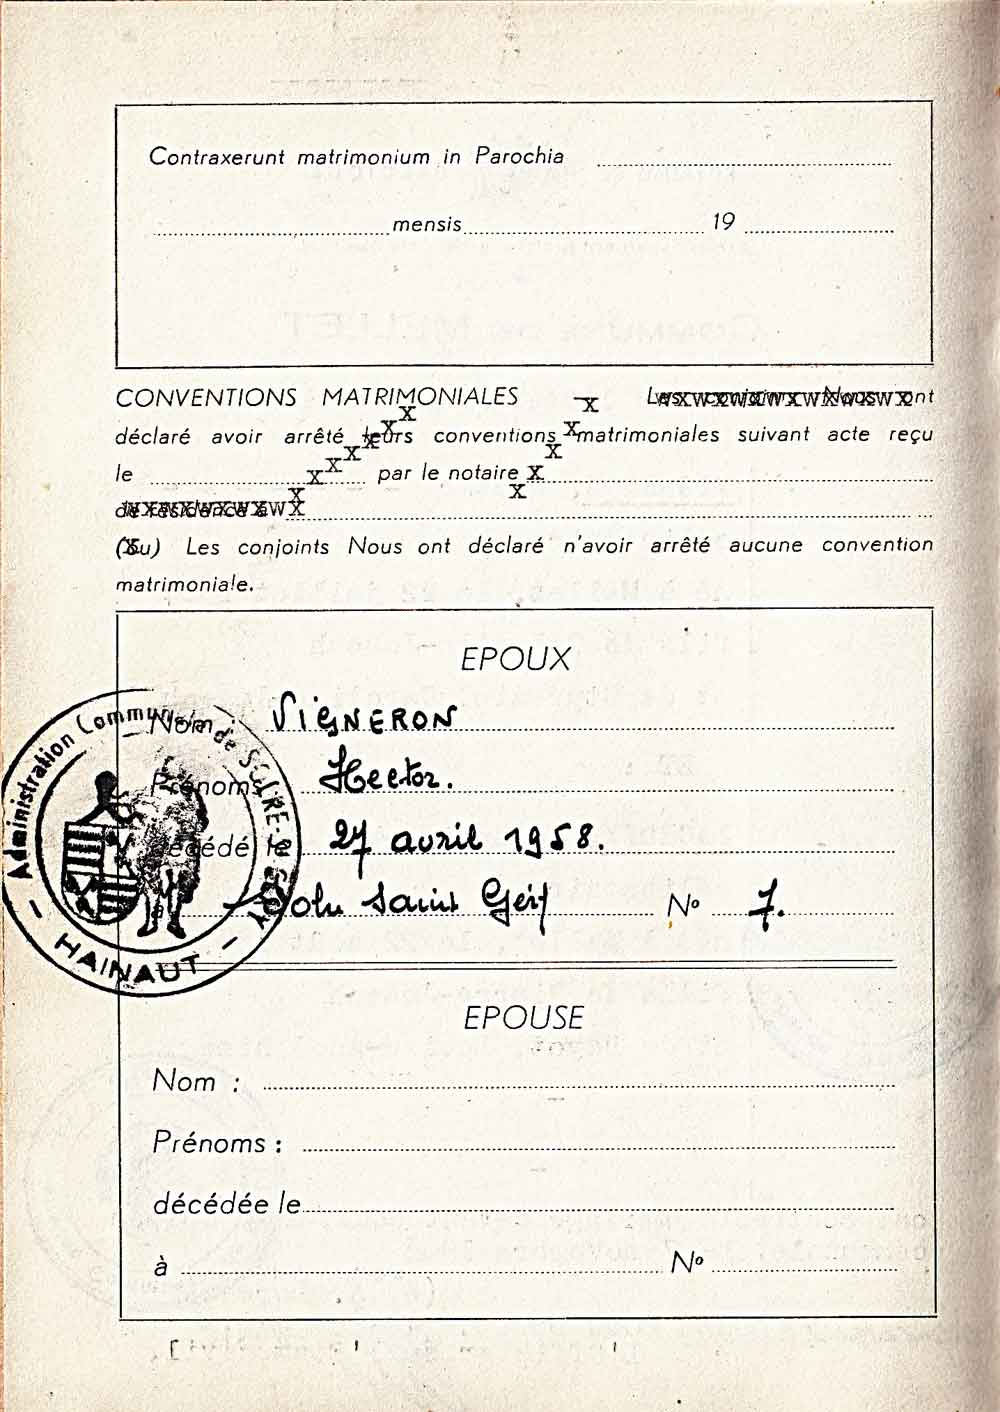 Contraxerunt matrimonium in Parochia
mensis 19
CONVENTIONS MATRIMONIALES - Les conjoints Nous ont
déclaré avoir arrêté leurs conventions matrimoniales suivant acte reçu
le par le notaire
de résidence à
(Ou) Les conjoints Nous ont déclaré n'avoir arrêté aucune convention
matrimoniale.
EPOUX
Nom : VIGNERON
Prénoms Hector.
décédé le 27 avril 1958.
à Solre Saint Géry No 7.
Administration Communale de SOLRE-St-GERY
- HAINAUT -
EPOUSE
Nom :
Prénoms :
décédée le
à No